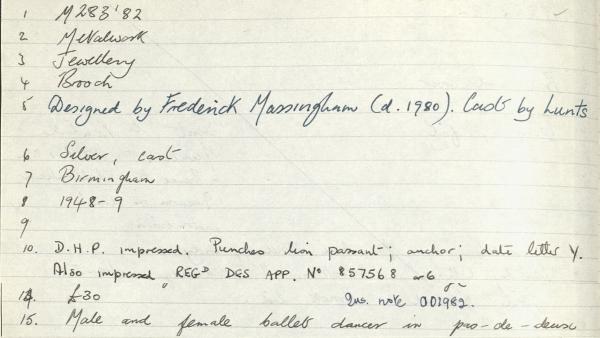 1 M283'82
2 Metalwork
3 Jewellery
4 Brooch
5 Designed by Frederick Massingham (d. 1980). Cast by Lunts
6 Silver, cast
7 Birmingham
8 1948-9
9
10. D.H.P. impressed. Punches lion passant; anchor; date letter Y.
Also impressed "REGD DES APP. No 857568 or 6
14. £30 Ins. note 001982.
15. Male and female ballet dancer in pas-de-deux